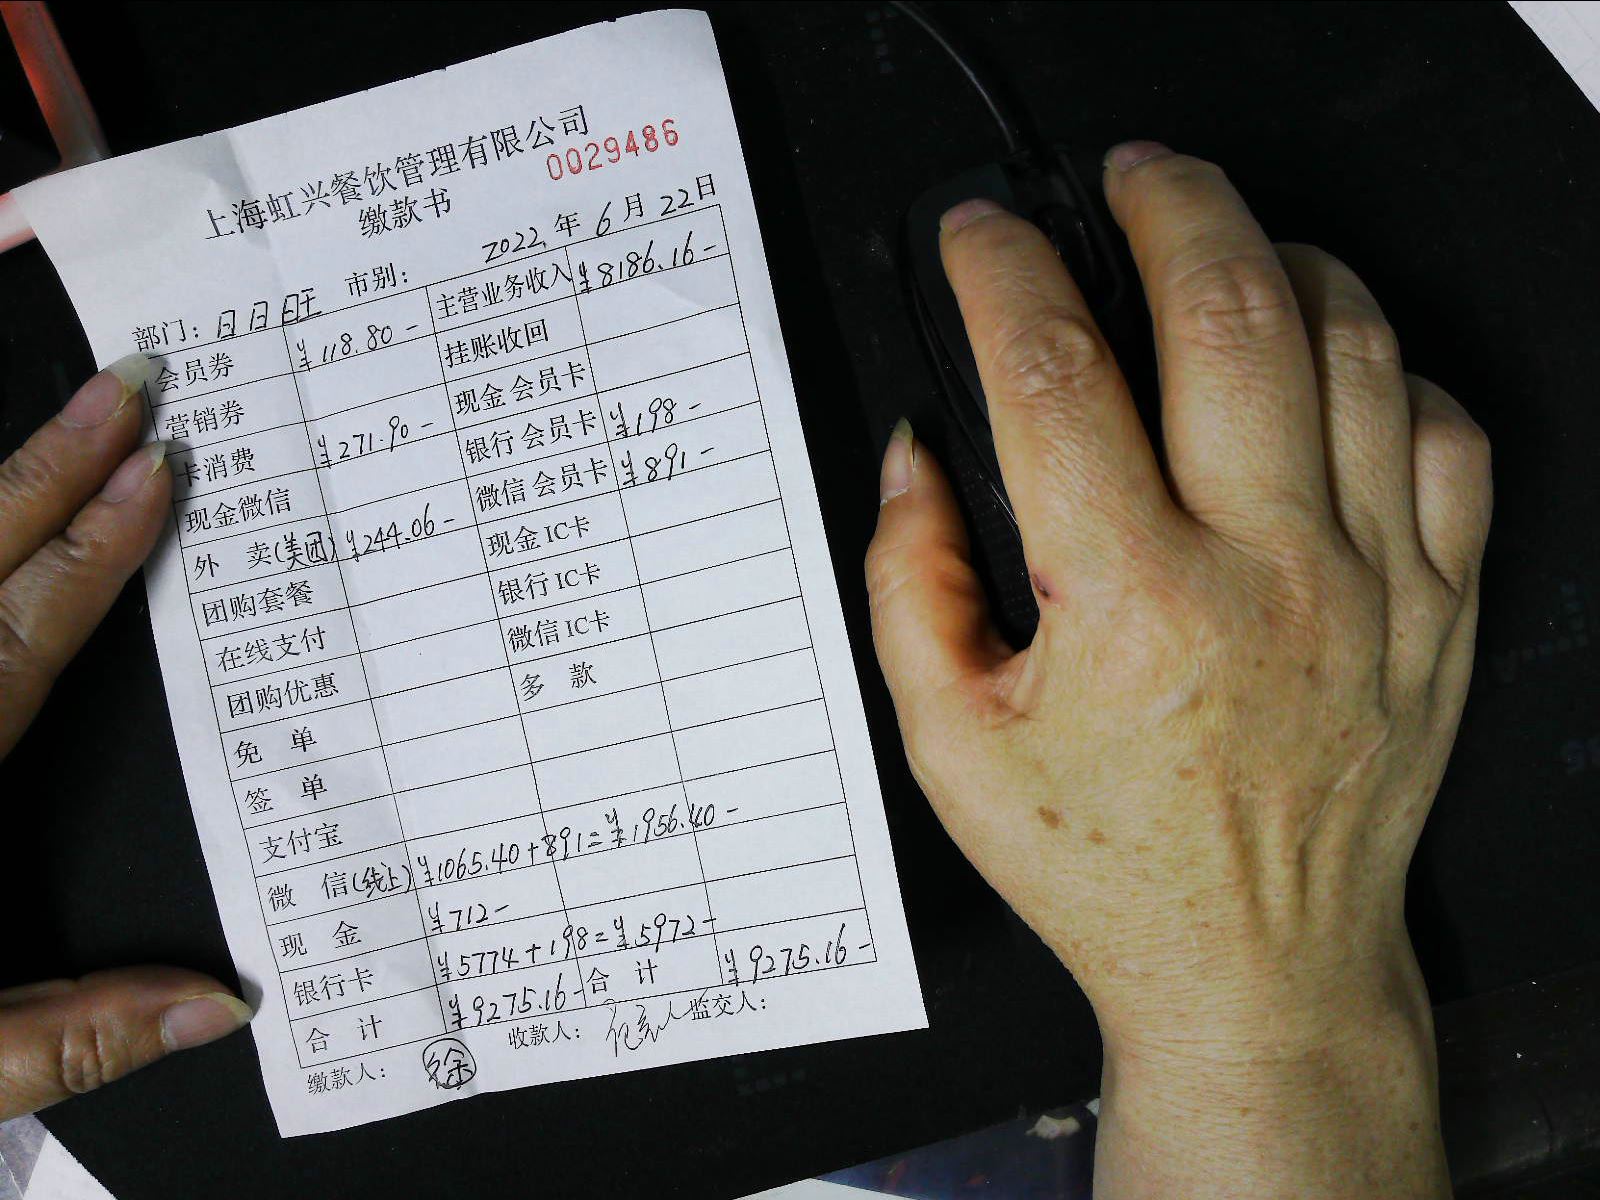 上海虹兴餐饮管理有限公司
0029486
缴款书
2022年6月22日
部门：日日旺 市别：
会员券 ¥118.80- 主营业务收入 ¥8186.16-
营销券 挂账收回
卡消费 ¥271.90- 现金会员卡
现金微信 银行会员卡 ¥198-
外 卖(美团) ¥244.06- 微信会员卡 ¥891-
团购套餐 现金IC卡
在线支付 银行IC卡
团购优惠 微信IC卡
免 单 多 款
签 单
支付宝
微 信(线上) ¥1065.40+891=¥1956.40-
现 金 ¥712-
银行卡 ¥5774+198=¥5972-
合 计 ¥9275.16- 合 计 ¥9275.16-
缴款人： 徐 收款人： 监交人：